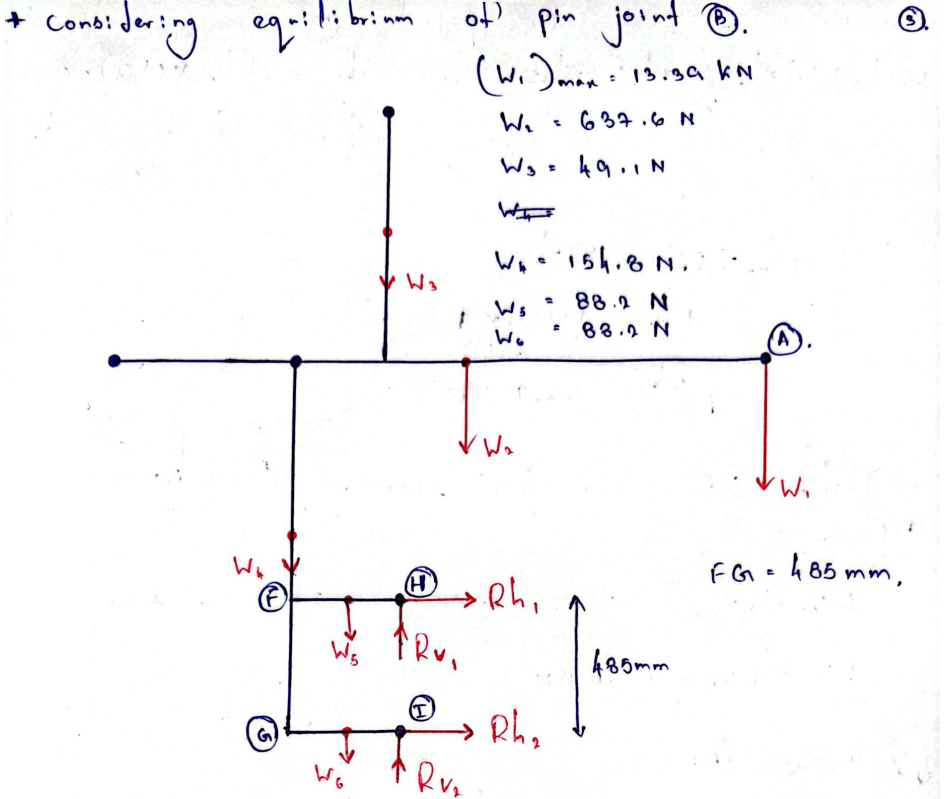 * Considering equilibrium of pin joint Ⓑ. ③.
(W₁)max = 13.39 kN
W₂ = 637.6 N
W₃ = 49.1 N
W₄ = 154.8 N.
W₅ = 88.2 N
W₆ = 88.2 N
W₃
Ⓐ.
W₂
W₁
W₄
FG = 485 mm,
Ⓕ Ⓗ Rh₁
W₅ Rv₁
485mm
Ⓖ Ⓘ Rh₂
W₆ Rv₂